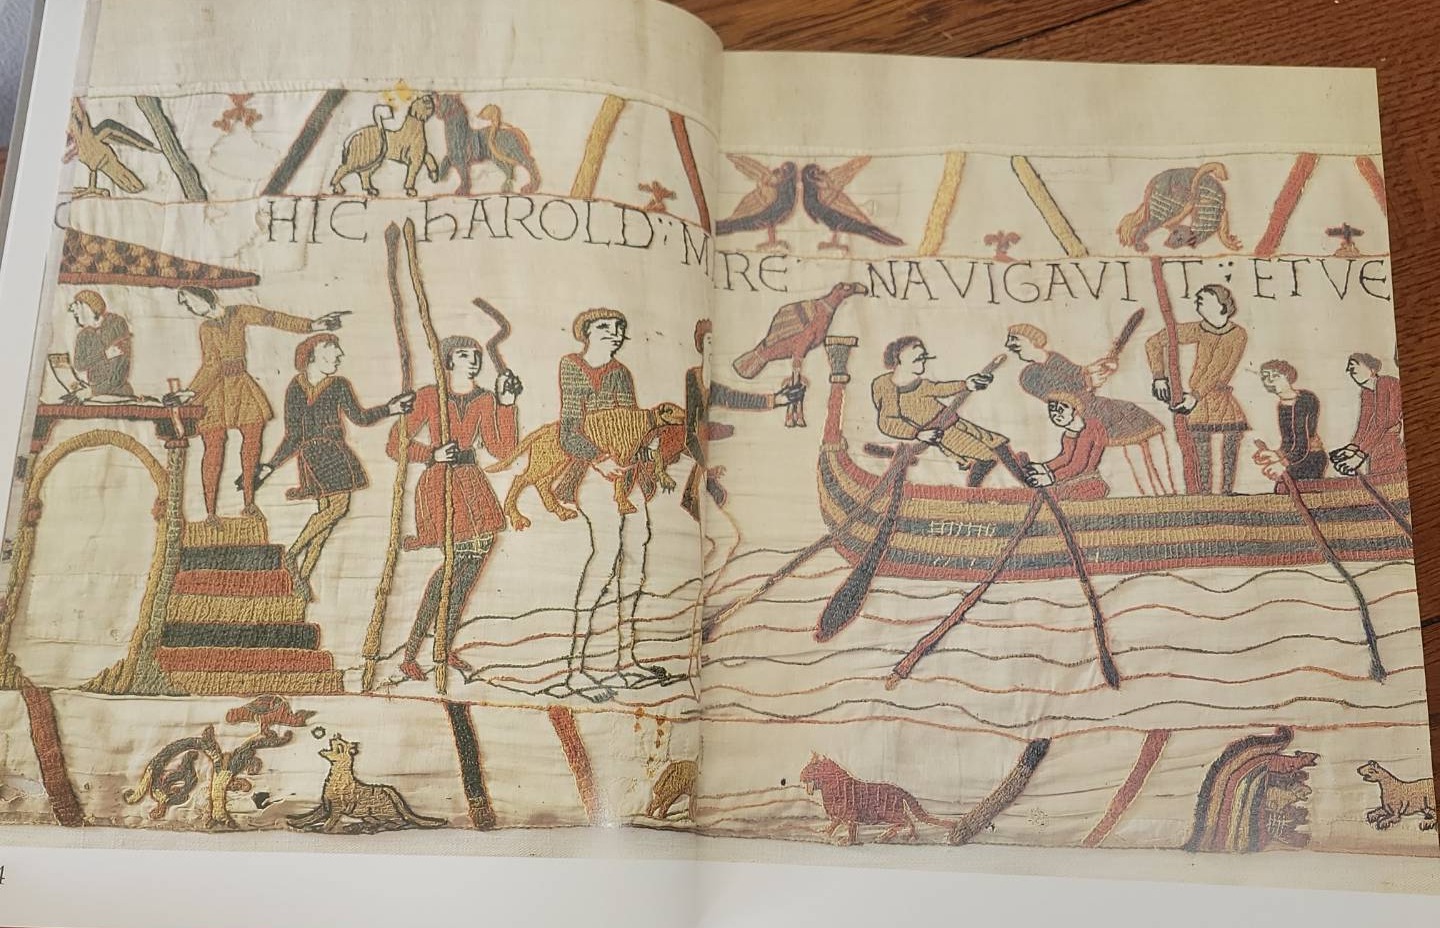 HIC hAROLD : MARE NAVIGAVIT : ET VE
4